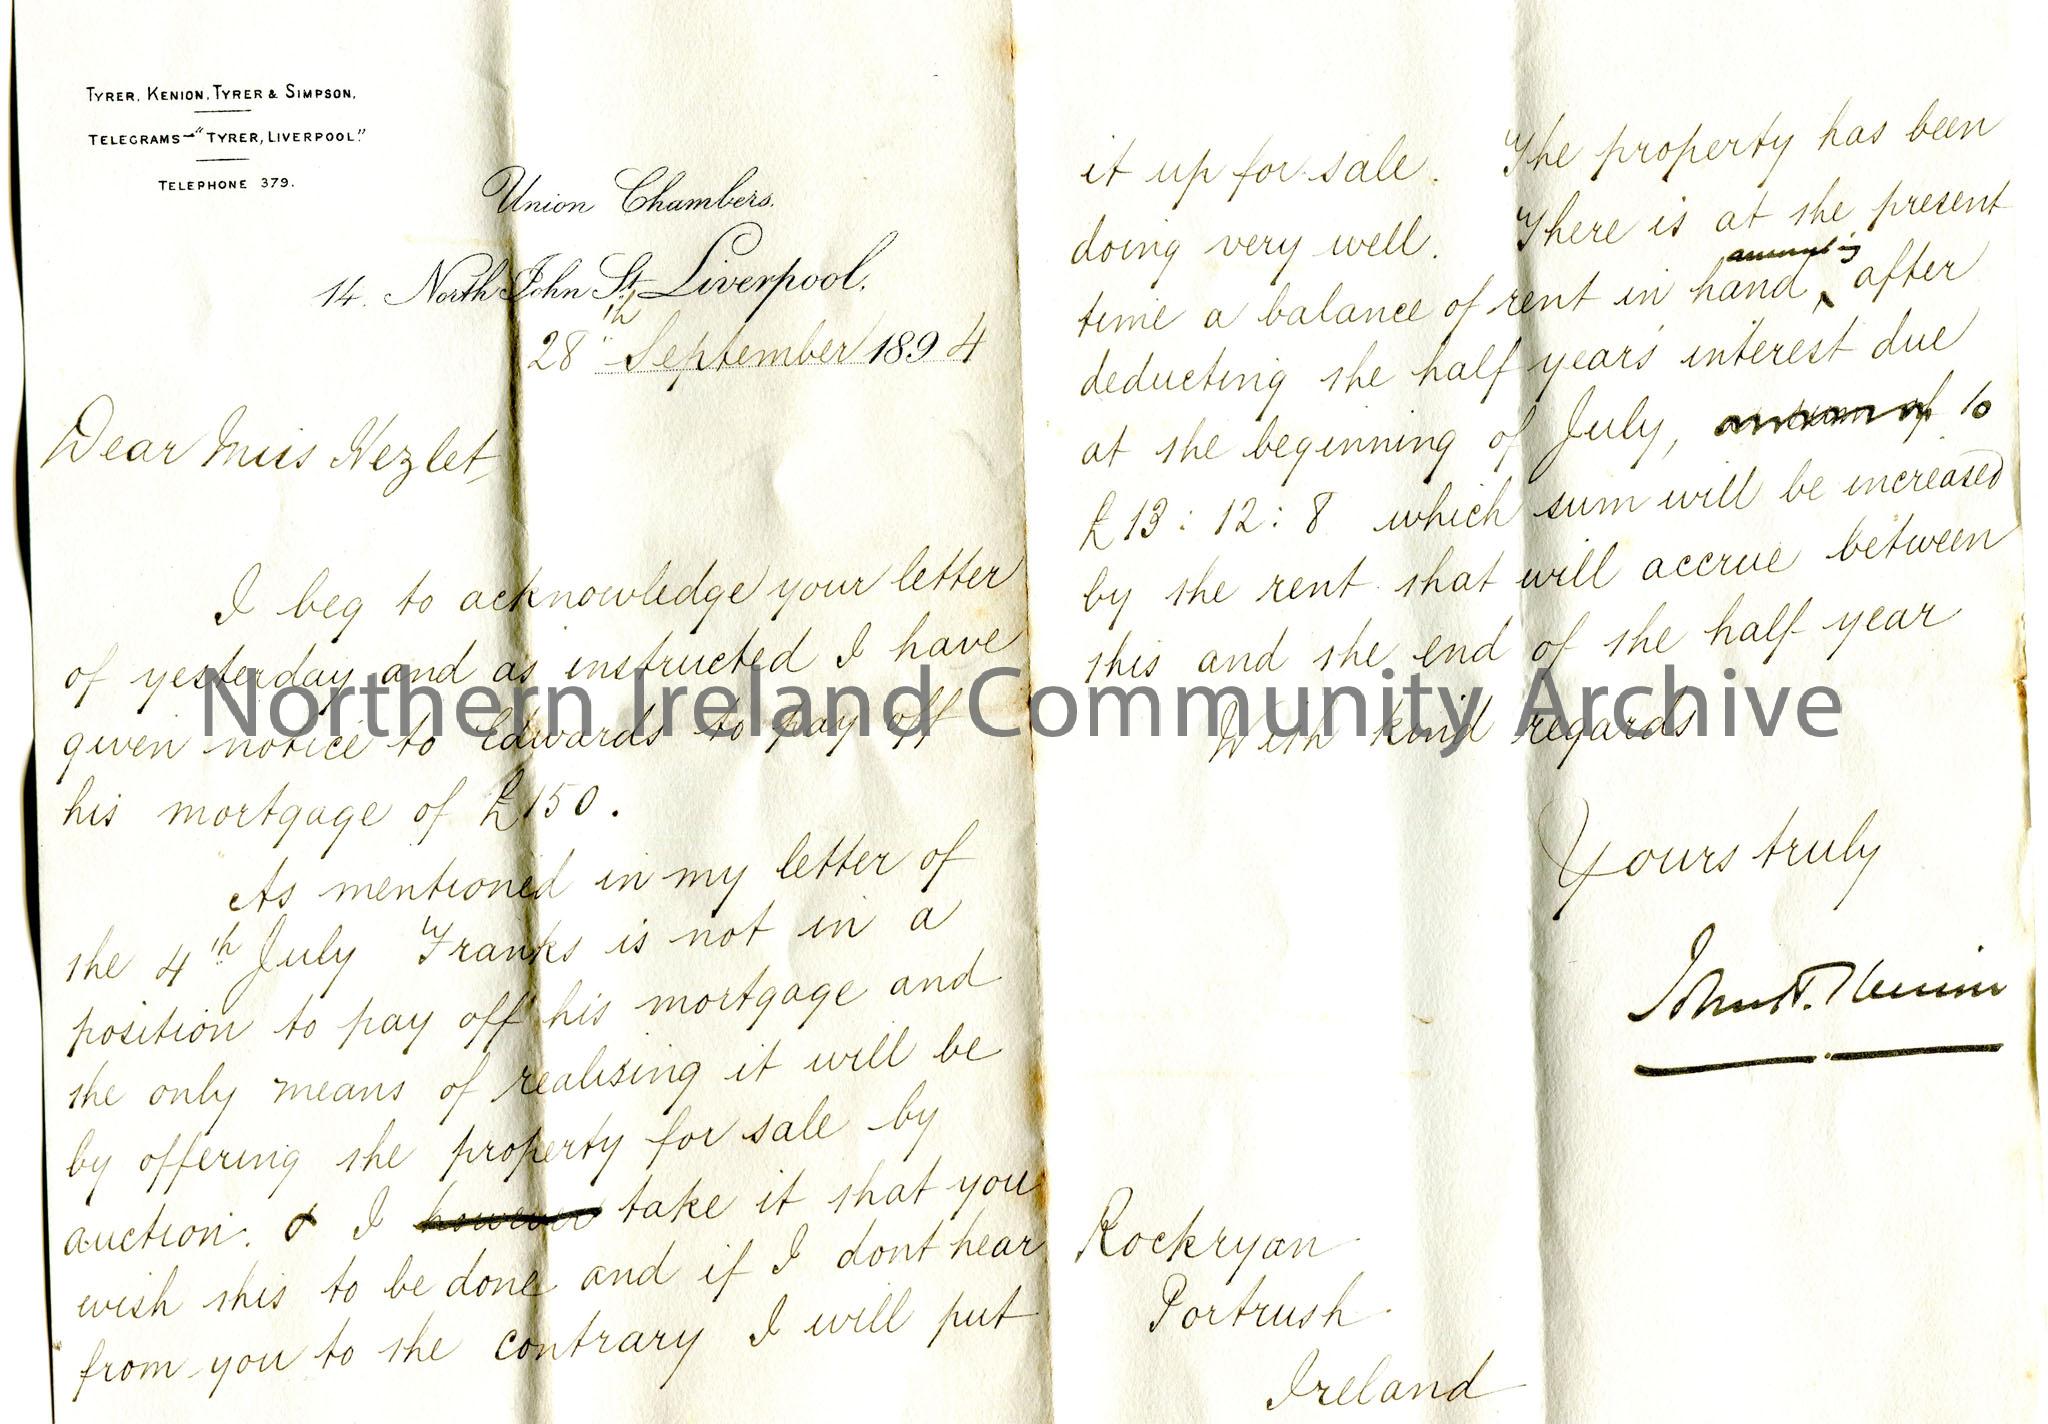 TYRER, KENION, TYRER & SIMPSON.
TELEGRAMS—"TYRER, LIVERPOOL."
TELEPHONE 379.
Union Chambers.
14. North John St. Liverpool.
28th September 1894
Dear Miss Hezlet,
I beg to acknowledge your letter
of yesterday and as instructed I have
given notice to Edwards to pay off
his mortgage of £150.
As mentioned in my letter of
the 4th July Franks is not in a
position to pay off his mortgage and
the only means of realising it will be
by offering the property for sale by
auction. & I however take it that you
wish this to be done and if I dont hear
from you to the contrary I will put
it up for sale. The property has been
doing very well. There is at the present
time a balance of rent in hand, amounting after
deducting the half years interest due
at the beginning of July, to
£13:12:8 which sum will be increased
by the rent that will accrue between
this and the end of the half year
With kind regards
Yours truly
John Kenion
Rockryan
Portrush
Ireland
Northern Ireland Community Archive